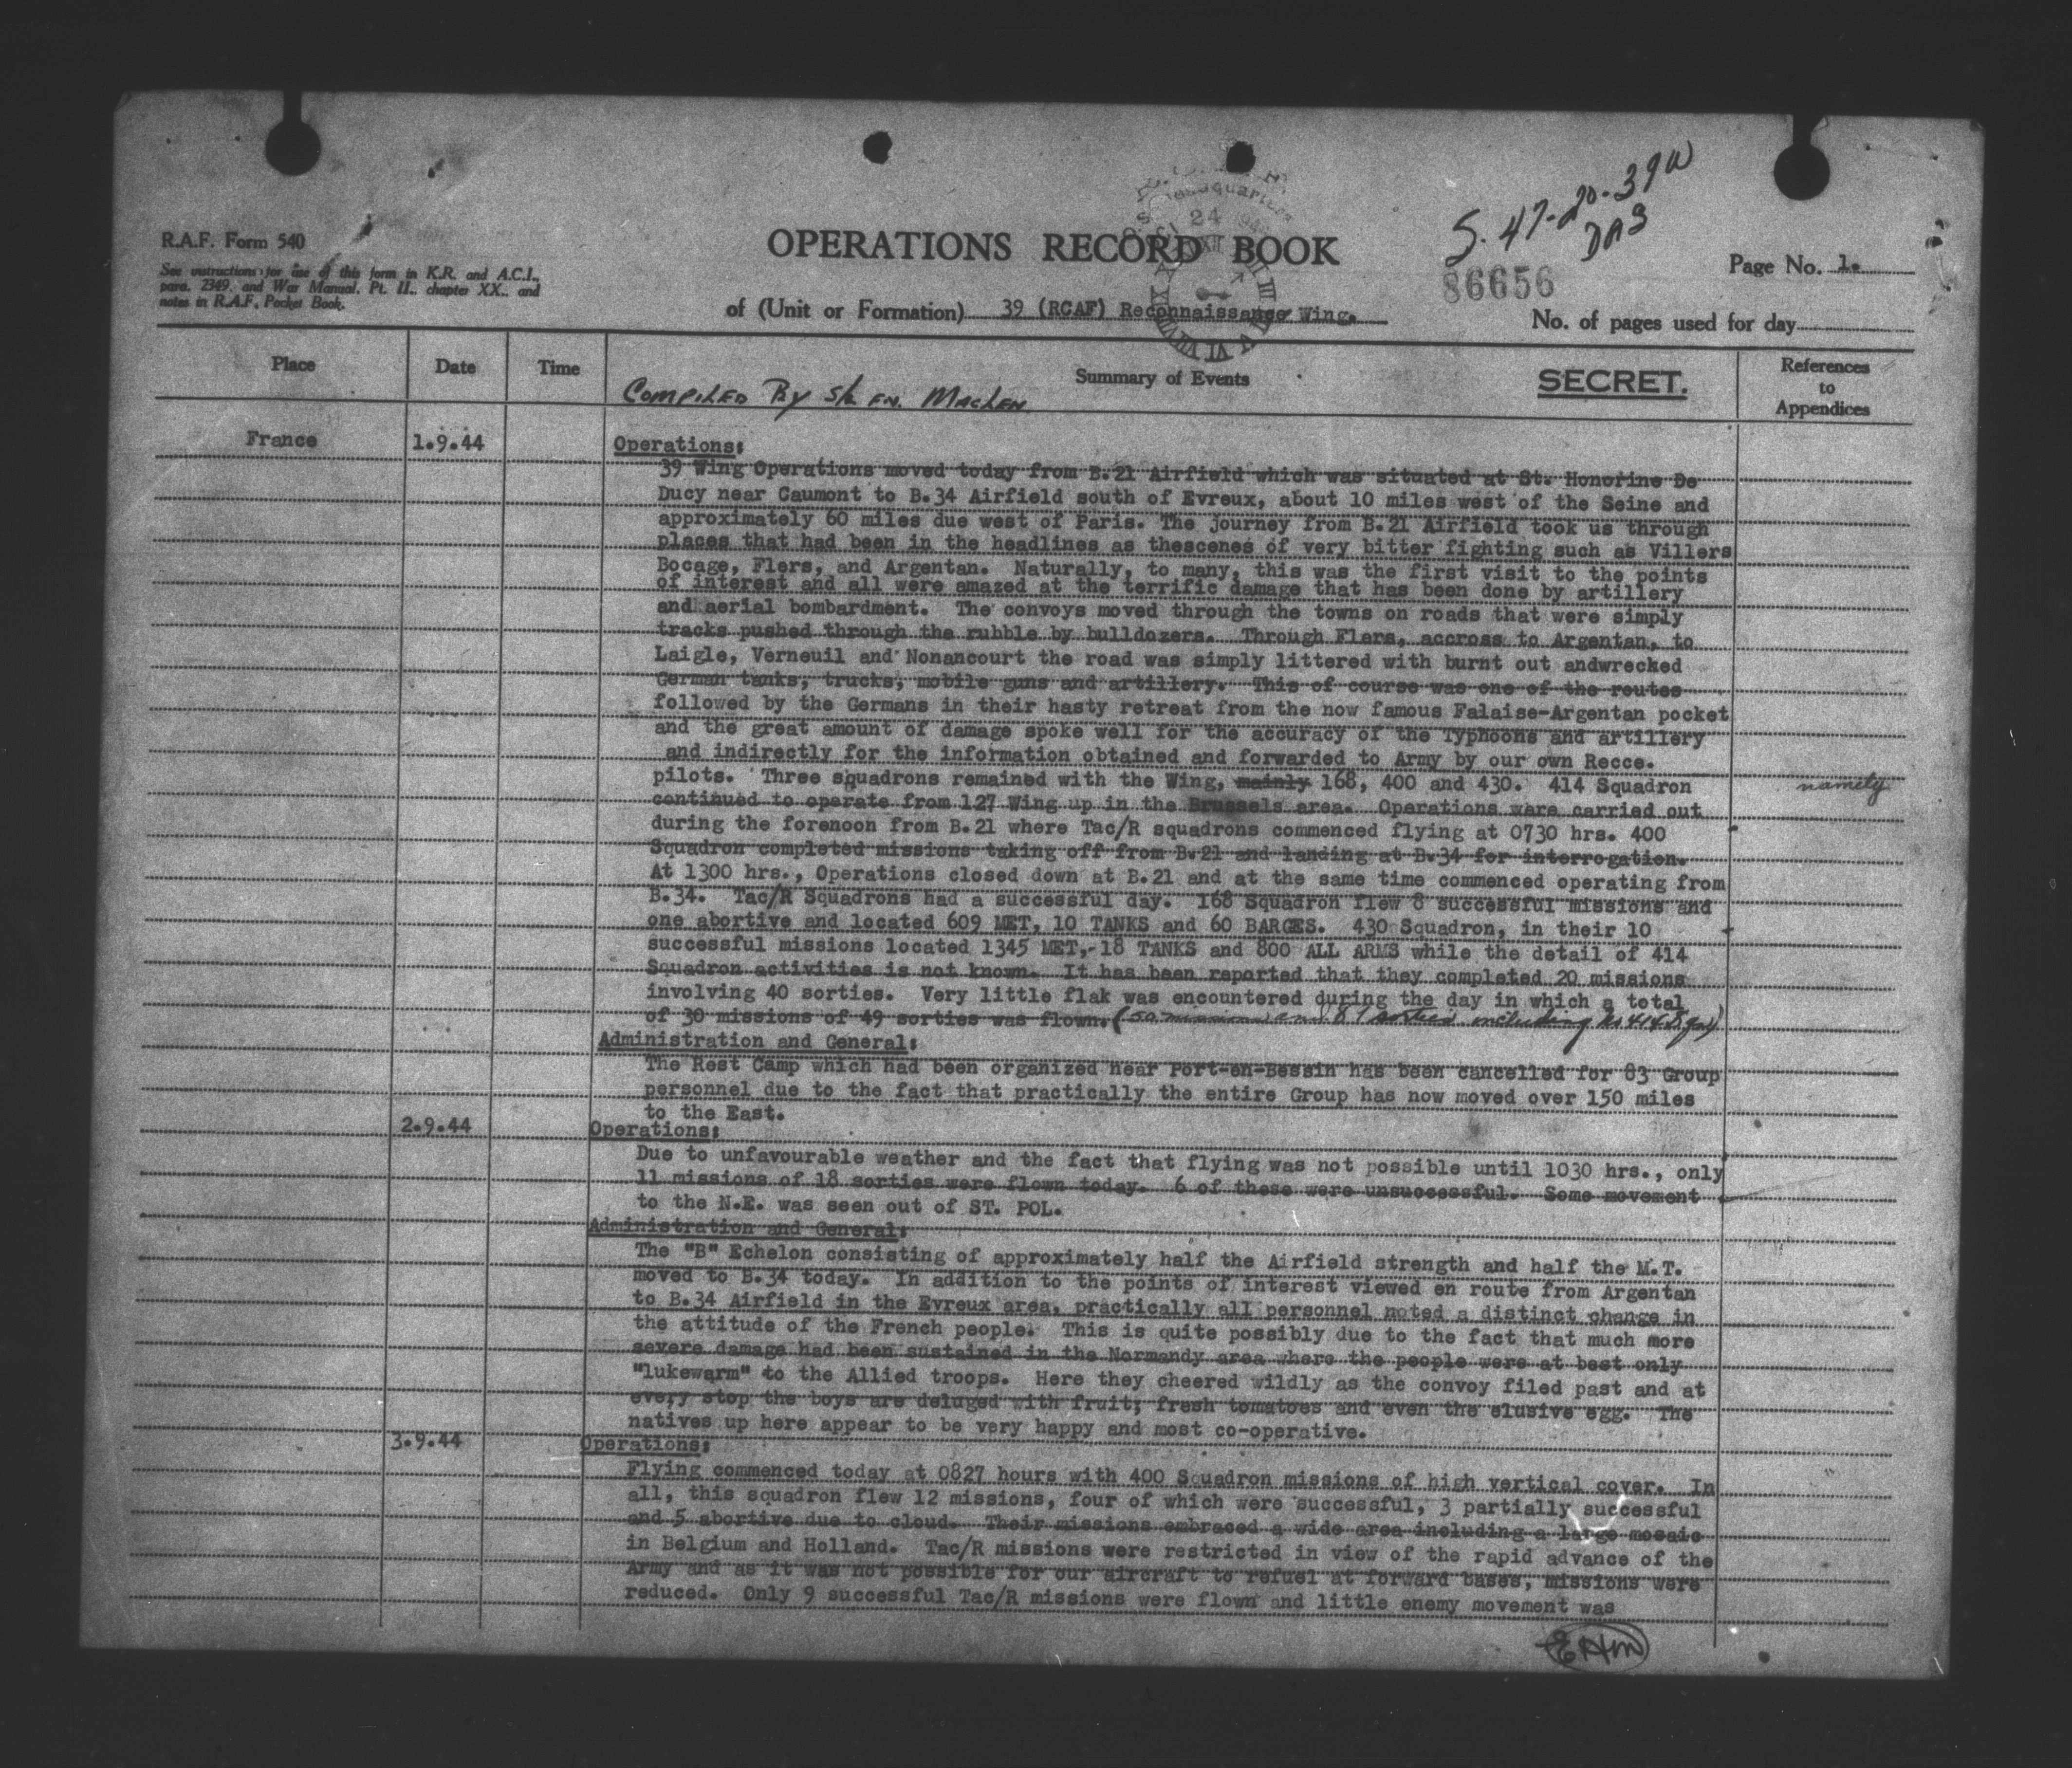 S. 47-20-39W
DAS
R.A.F. Form 540
See instructions for use of this form in K.R. and A.C.I.,
para. 2349, and War Manual, Pt. II., chapter XX., and
notes in R.A.F. Pocket Book.
OPERATIONS RECORD BOOK
86656
Page No. 1.
of (Unit or Formation) 39 (RCAF) Reconnaissance Wing.
No. of pages used for day
Place Date Time Summary of Events SECRET. References to Appendices
Compiled By S/L
France 1.9.44 Operations:
39 Wing Operations moved today from B.21 Airfield which was situated at St. Honorine De
Ducy near Caumont to B.34 Airfield south of Evreux, about 10 miles west of the Seine and
approximately 60 miles due west of Paris. The journey from B.21 Airfield took us through
places that had been in the headlines as thescenes of very bitter fighting such as Villers
Bocage, Flers, and Argentan. Naturally, to many, this was the first visit to the points
of interest and all were amazed at the terrific damage that has been done by artillery
and aerial bombardment. The convoys moved through the towns on roads that were simply
tracks pushed through the rubble by bulldozers. Through Flers, accross to Argentan, to
Laigle, Verneuil and Nonancourt the road was simply littered with burnt out andwrecked
German tanks, trucks, mobile guns and artillery. This of course was one of the routes
followed by the Germans in their hasty retreat from the now famous Falaise-Argentan pocket
and the great amount of damage spoke well for the accuracy of the Typhoons and artillery
and indirectly for the information obtained and forwarded to Army by our own Recce.
pilots. Three squadrons remained with the Wing, mainly 168, 400 and 430. 414 Squadron namely
continued to operate from 127 Wing up in the Brussels area. Operations were carried out
during the forenoon from B.21 where Tac/R squadrons commenced flying at 0730 hrs. 400
Squadron completed missions taking off from B.21 and landing at B.34 for interrogation.
At 1300 hrs., Operations closed down at B.21 and at the same time commenced operating from
B.34. Tac/R Squadrons had a successful day. 168 Squadron flew 8 successful missions and
one abortive and located 609 MET, 10 TANKS and 60 BARGES. 430 Squadron, in their 10
successful missions located 1345 MET, 18 TANKS and 800 ALL ARMS while the detail of 414
Squadron activities is not known. It has been reported that they completed 20 missions
involving 40 sorties. Very little flak was encountered during the day in which a total
of 30 missions of 49 sorties was flown. (50 missions and 89 sorties including 414 Sqn)
Administration and General:
The Rest Camp which had been organized near Port-en-Bessin has been cancelled for 83 Group
personnel due to the fact that practically the entire Group has now moved over 150 miles
to the East.
2.9.44 Operations:
Due to unfavourable weather and the fact that flying was not possible until 1030 hrs., only
11 missions of 18 sorties were flown today. 6 of these were unsuccessful. Some movement
to the N.E. was seen out of ST. POL.
Administration and General:
The "B" Echelon consisting of approximately half the Airfield strength and half the M.T.
moved to B.34 today. In addition to the points of interest viewed en route from Argentan
to B.34 Airfield in the Evreux area, practically all personnel noted a distinct change in
the attitude of the French people. This is quite possibly due to the fact that much more
severe damage had been sustained in the Normandy area where the people were at best only
"lukewarm" to the Allied troops. Here they cheered wildly as the convoy filed past and at
every stop the boys are deluged with fruit, fresh tomatoes and even the elusive egg. The
natives up here appear to be very happy and most co-operative.
3.9.44 Operations:
Flying commenced today at 0827 hours with 400 Squadron missions of high vertical cover. In
all, this squadron flew 12 missions, four of which were successful, 3 partially successful
and 5 abortive due to cloud. Their missions embraced a wide area including a large mosaic
in Belgium and Holland. Tac/R missions were restricted in view of the rapid advance of the
Army and as it was not possible for our aircraft to refuel at forward bases, missions were
reduced. Only 9 successful Tac/R missions were flown and little enemy movement was